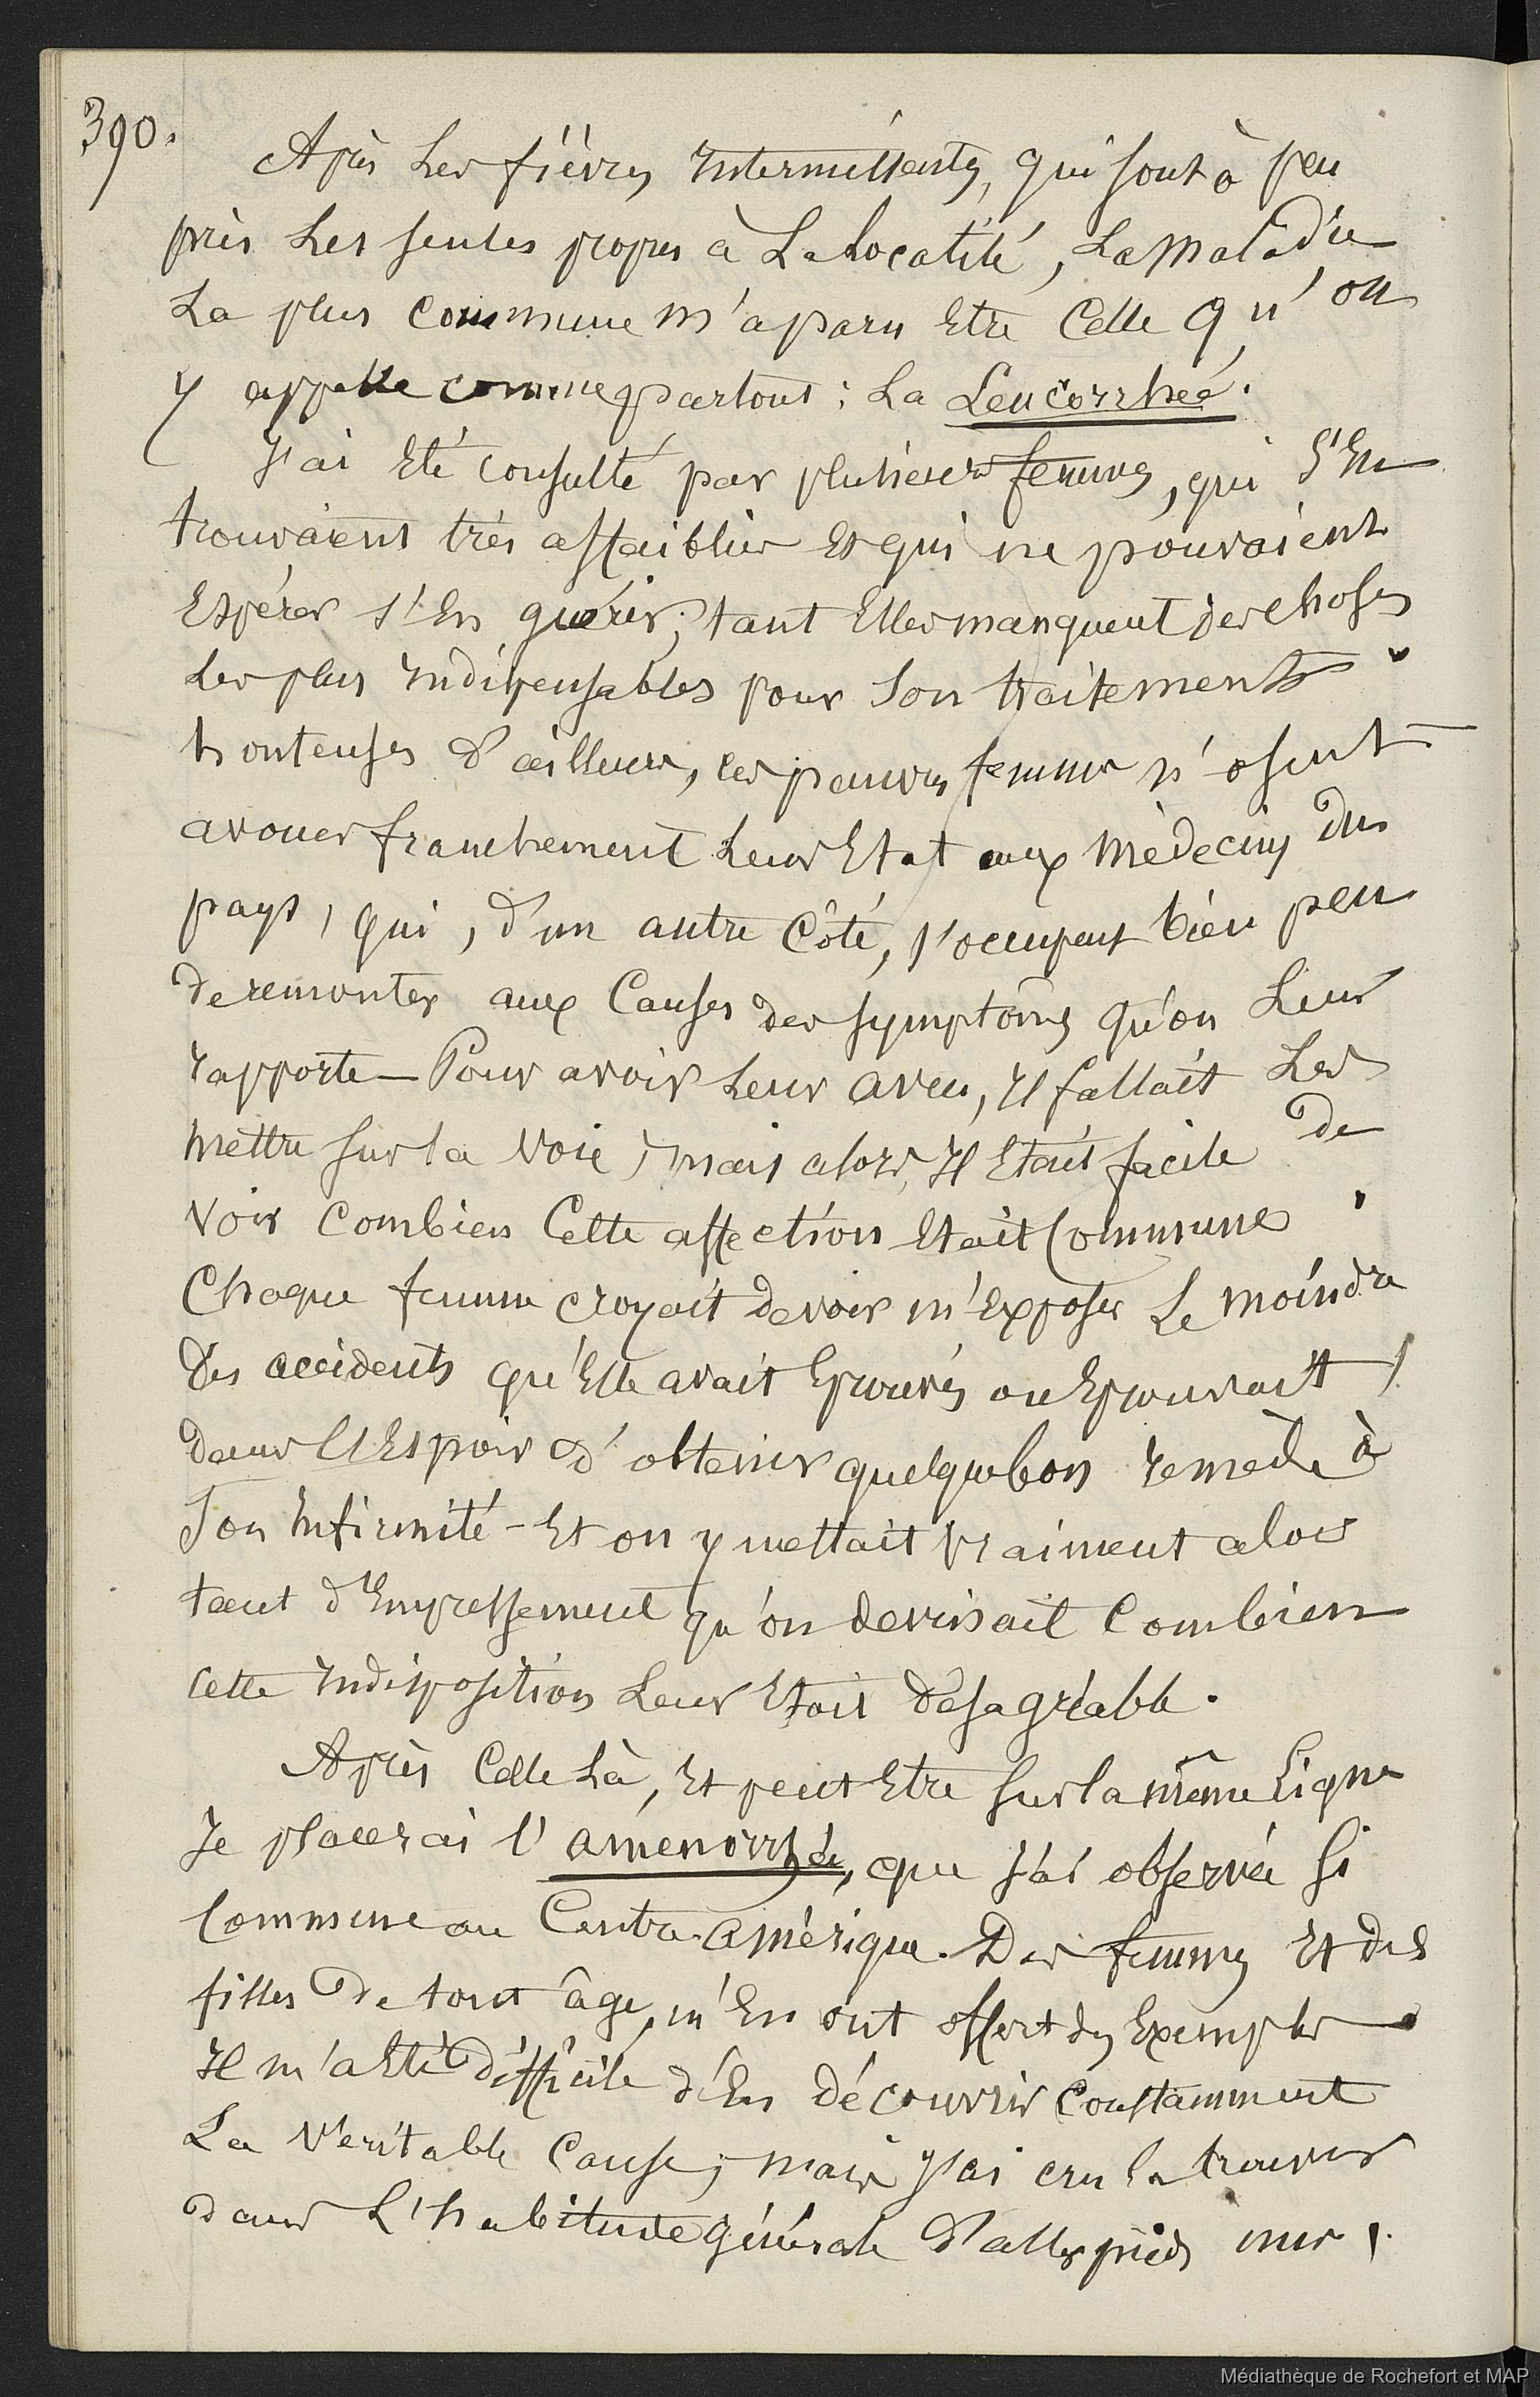 390.
Après Les fièvres Intermittentes, qui sont à peu
près Les seules propres à La Localité, La Maladie
La plus Commune m'a paru Etre Celle qu'on
y appelle comme partout : La Leucorrheé.
J'ai Eté consulté par plusieurs femmes, qui S'En
trouvaient très affaiblies Et qui ne pouvaient
Espérer s'En guérir, tant Elles manquent des choses
Les plus Indispensables pour Son traitement.
honteuses d'ailleurs, ces pauvres femmes n'osent
avouer franchement Leur Etat aux Médecins du
pays, qui, d'un autre Côté, s'occupent bien peu
de remonter aux Causes des symptômes qu'on Leur
rapporte — Pour avoir Leur aveu, Il fallait Les
Mettre sur la Voie, mais alors, Il Etait facile de
Voir Combien Cette affection Etait Commune.
Chaque femme croyait devoir m'Exposer Le moindre
Des accidents qu'Elle avait Eprouvés ou Eprouvait,
dans L'Espoir d'obtenir quelque bon remède à
Son Infirmité - Et on y mettait Vraiment alors
tant d'Empressement qu'on devinait Combien
Cette Indisposition Leur Etait Désagréable.
Après Celle Là, Et peut Etre Sur la même Ligne
Je placerai l'amenorrhée, que j'ai observée Si
Commune au Centre-Amérique. Des femmes Et des
filles De tout âge, m'En ont offert des Exemples.
Il m'a Eté Difficile d'En Découvrir Constamment
La Véritable Cause ; mais J'ai cru la trouver
dans L'habitude générale D'aller pieds nus,
Médiathèque de Rochefort et MAP